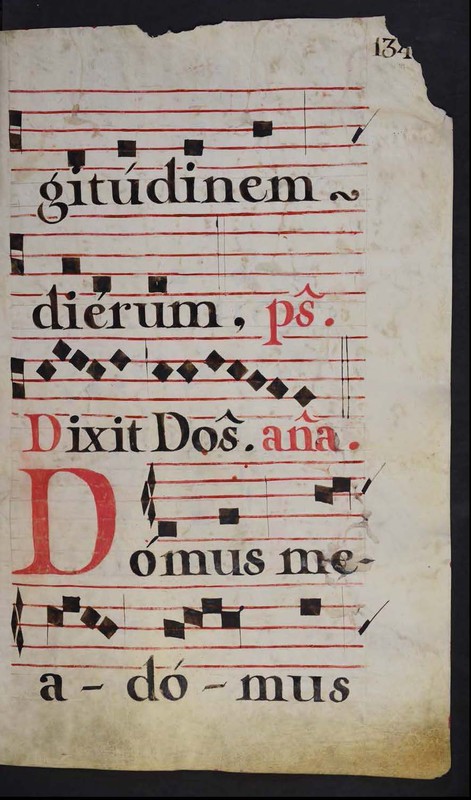 134
gitúdinem
diérum, ps̑.
Dixit Dos̑. an̑a.
Dómus me-
a - dó - mus